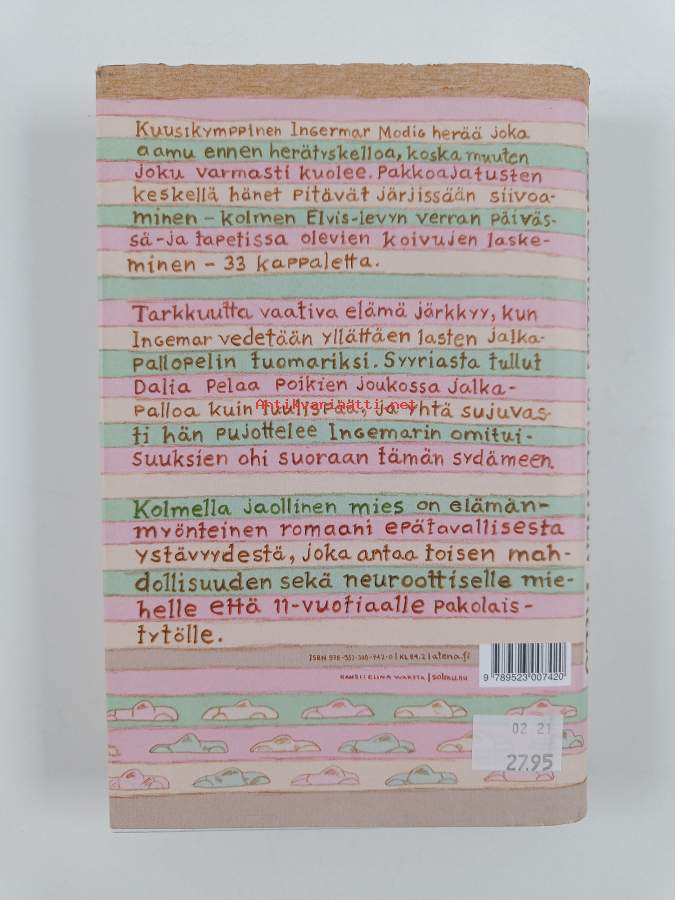 Kuusikymppinen Ingermar Modig herää joka
aamu ennen herätyskelloa, koska muuten
joku varmasti kuolee. Pakkoajatusten
keskellä hänet pitävät järjissään siivoa-
minen – kolmen Elvis-levyn verran päiväs-
sä – ja tapetissa olevien koivujen laske-
minen – 33 kappaletta.
Tarkkuutta vaativa elämä järkkyy, kun
Ingemar vedetään yllättäen lasten jalka-
pallopelin tuomariksi. Syyriasta tullut
Dalia pelaa poikien joukossa jalka-
palloa kuin tuulispää, ja yhtä sujuvas-
Antikvariaatti.net
ti hän pujottelee Ingemarin omitui-
suuksien ohi suoraan tämän sydämeen.
Kolmella jaollinen mies on elämän-
myönteinen romaani epätavallisesta
ystävyydestä, joka antaa toisen mah-
dollisuuden sekä neuroottiselle mie-
helle että 11-vuotiaalle pakolais-
tytölle.
ISBN 978-952-300-742-0 | KL 84.2 | atena.fi
KANSI: ELINA WARSTA | solmu.nu
9 789523 007420
02 21
27.95